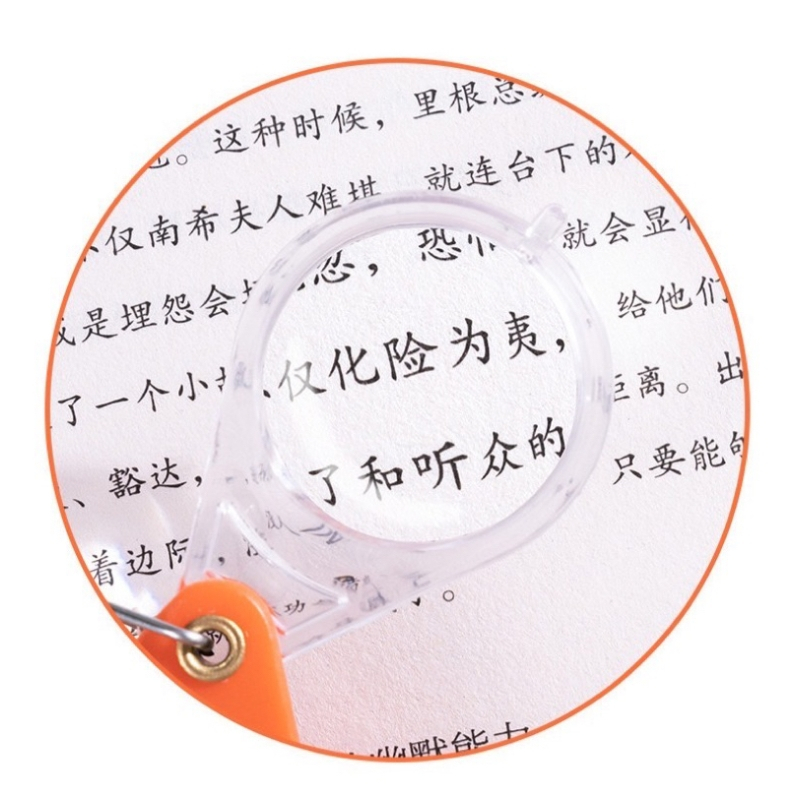 。这种时候，里根总
仅南希夫人难堪 就连台下的
是埋怨会 忍，恐 就会显
了一个小 仅化险为夷， 给他们
、豁达， 了和听众的 距离。出
着边际 只要能够
功 。
幽默能力